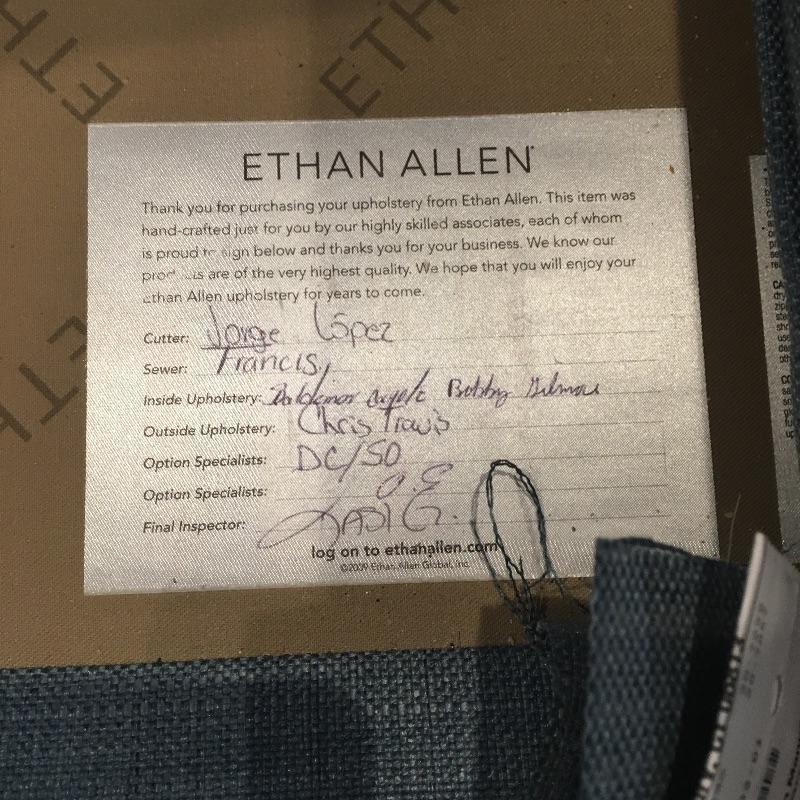 ETHAN ALLEN
Thank you for purchasing your upholstery from Ethan Allen. This item was
hand-crafted just for you by our highly skilled associates, each of whom
is proud to sign below and thanks you for your business. We know our
products are of the very highest quality. We hope that you will enjoy your
Ethan Allen upholstery for years to come.
Cutter: Jorge López
Sewer: Francis
Inside Upholstery: Bobby Gilmore
Outside Upholstery: Chris Travis
Option Specialists: DC/SO
Option Specialists: O.E
Final Inspector: G.
log on to ethanallen.com
©2009 Ethan Allen Global, Inc.
ETH
ETH
ETH